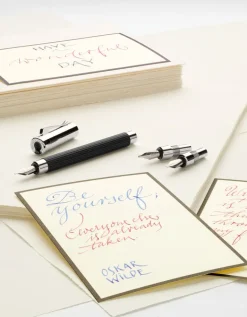 HAVE
a wonderful
DAY
Be
yourself,
everyone else
is already
taken
OSKAR
WILDE